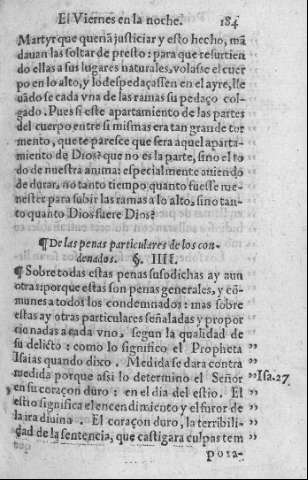 El Viernes en la noche. 184
Martyr que queriã justiciar y esto hecho, mã
dauan las soltar de presto: para que resurtien
do ellas a sus lugares naturales, volasse el cuer
po en lo alto, y lo despedaçassẽn en el ayre, lle
uãdo se cada vna de las ramas su pedaço col-
gado. Pues si este apartamiento de las partes
del cuerpo entre si mismas era tan grande tor
mento, que te paresce que sera aquel aparta-
miento de Dios? que no es la parte, sino el to
do de nuestra anima: especialmente auiendo
de durar, no tanto tiempo quanto fuesse me-
nester para subir las ramas a lo alto, sino tan-
to quanto Dios fuere Dios?
¶ De las penas particulares de los con-
denados. §. IIII.
¶ Sobre todas estas penas susodichas ay aun
otra: porque estas son penas generales, y cõ-
munes a todos los condemnados: mas sobre
estas ay otras particulares señaladas y propor
cionadas a cada vno, segun la qualidad de
su delicto: como lo significo el Propheta
Isaias quando dixo. Medida se dara contra
medida porque assi lo determino el Señor " Isa. 27
en su coraçon duro: en el dia del estio. El "
estio significa el encendimiento y el furor de "
la ira diuina. El coraçon duro, la terribili- "
dad de la sentencia, que castigara culpas tem "
pora-